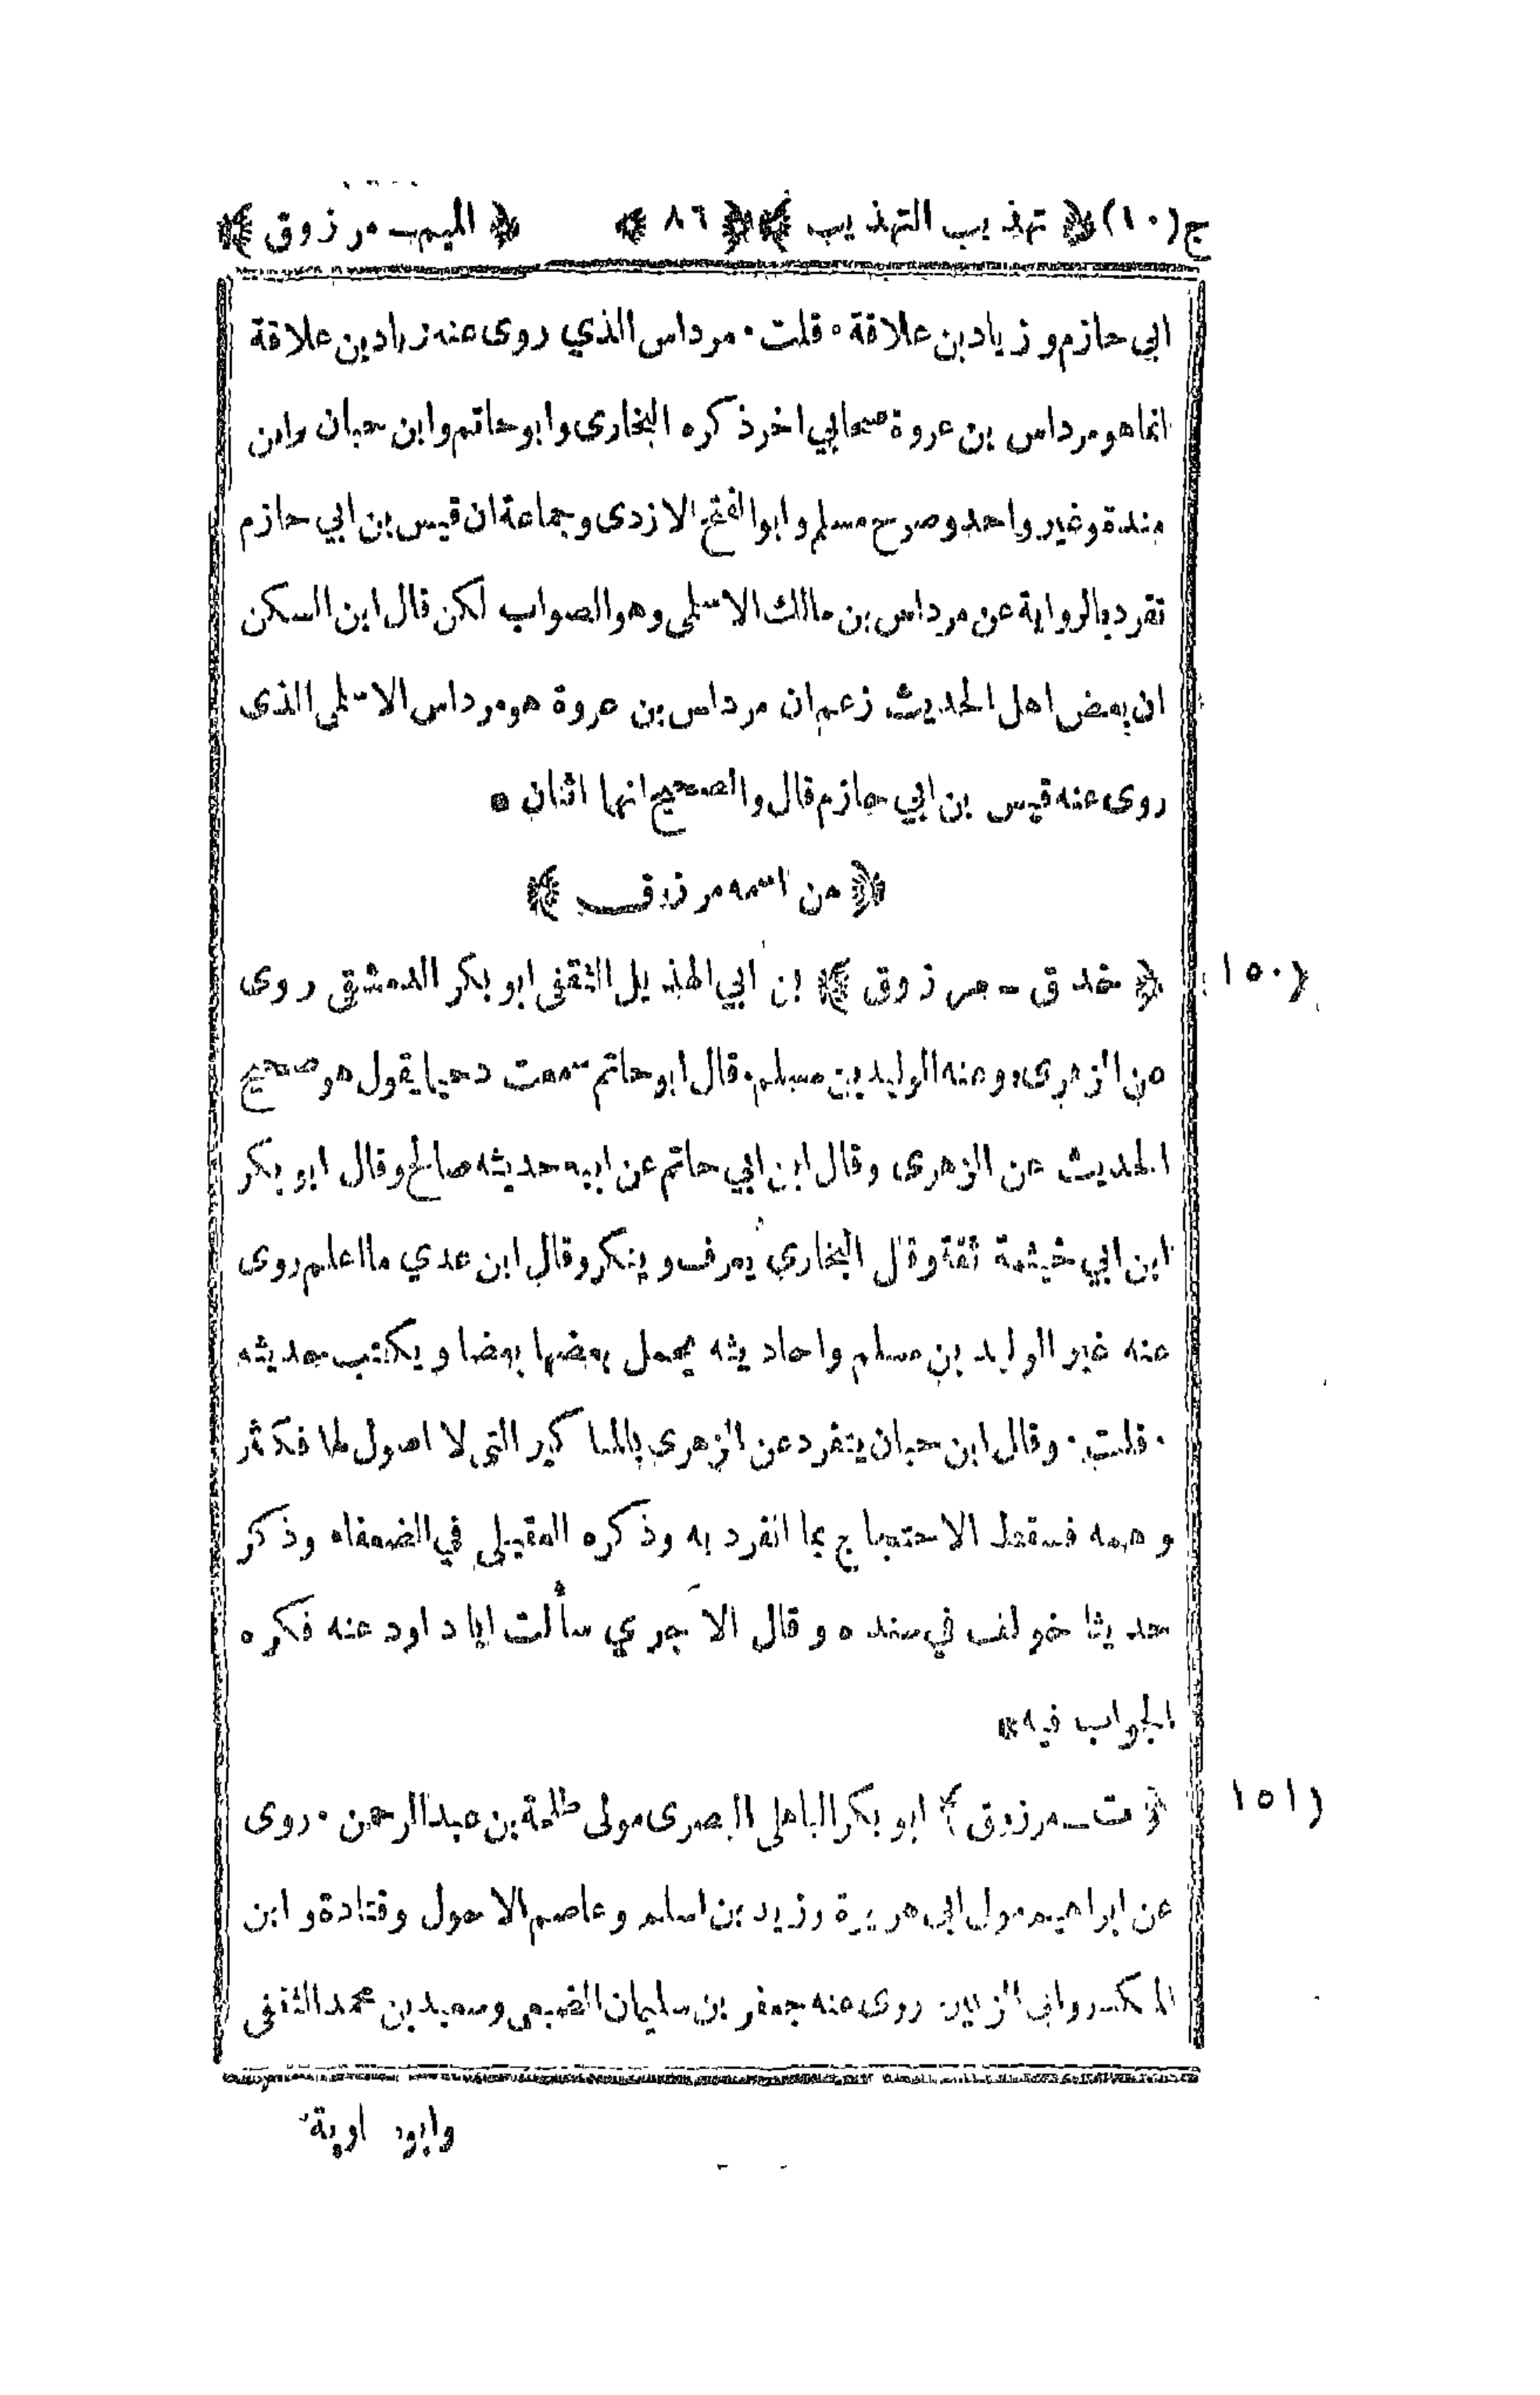 ج(١٠) ﴿ تهذيب التهذيب ﴾ ﴿ ٨٦ ﴾ ﴿ الميم ـ مرزوق ﴾
ابي حازم و زياد بن علاقة ٠ قلت ٠ مرداس الذي روى عنه زياد بن علاقة
انما هو مرداس بن عروة صحابي اخر ذكره البخارى وابو حاتم وابن حبان وابن
مندة وغير واحد وصرح مسلم وابو الفتح الازدى وجماعة ان قيس بن ابي حازم
تفرد بالرواية عن مرداس بن مالك الاسلمى وهو الصواب لكن قال ابن السكن
ان بعض اهل الحديث زعم ان مرداس بن عروة هو مرداس الاسلمى الذى
روى عنه قيس بن ابي حازم قال والصحيح انهما اثنان ٠
﴿ من اسمه مرزوق ﴾
(١٥٠ ﴿ خد ق ـ مرزوق ﴾ بن ابي الهذيل الثقفى ابو بكر الدمشقى روى
عن الزهرى ٠ وعنه الوليد بن مسلم ٠ قال ابو حاتم سمعت دحيما يقول هو صحيح
الحديث عن الزهرى وقال ابن ابي حاتم عن ابيه حديثه صالح وقال ابو بكر
ابن ابي خيثمة ثقة وقال البخارى يعرف وينكر وقال ابن عدي ما اعلم روى
عنه غير الوليد بن مسلم واحاديثه يحمل بعضها بعضا ويكتب حديثه
٠ قلت ٠ وقال ابن حبان يتفرد عن الزهرى بالمناكير التى لا اصول لها فكثر
وهمه فسقط الاحتجاج بما انفرد به وذكره العقيلى في الضعفاء وذكر
حديثا خولف في سنده وقال الآجري سألت ابا داود عنه فكره
الجواب فيه *
(١٥١ ﴿ ت ـ مرزوق ﴾ ابو بكر الباهلى البصرى مولى طلحة بن عبد الرحمن ٠ روى
عن ابراهيم مولى ابى هريرة وزيد بن اسلم وعاصم الاحول وقتادة وابن
المنكدر وابى الزبير روى عنه جعفر بن سليمان الضبعى وسعيد بن محمد الثقفى